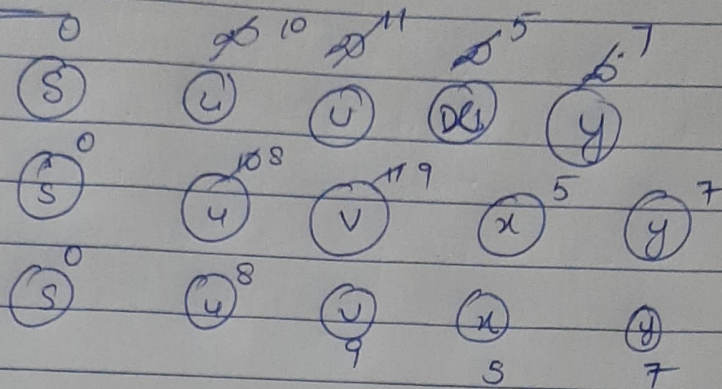 0 ∞ 10 ∞ 11 ∞ 5 ∞ 7
S u v x y
0 10 8 11 9 5 7
s u v x y
0 8
s u v x y
9 5 7